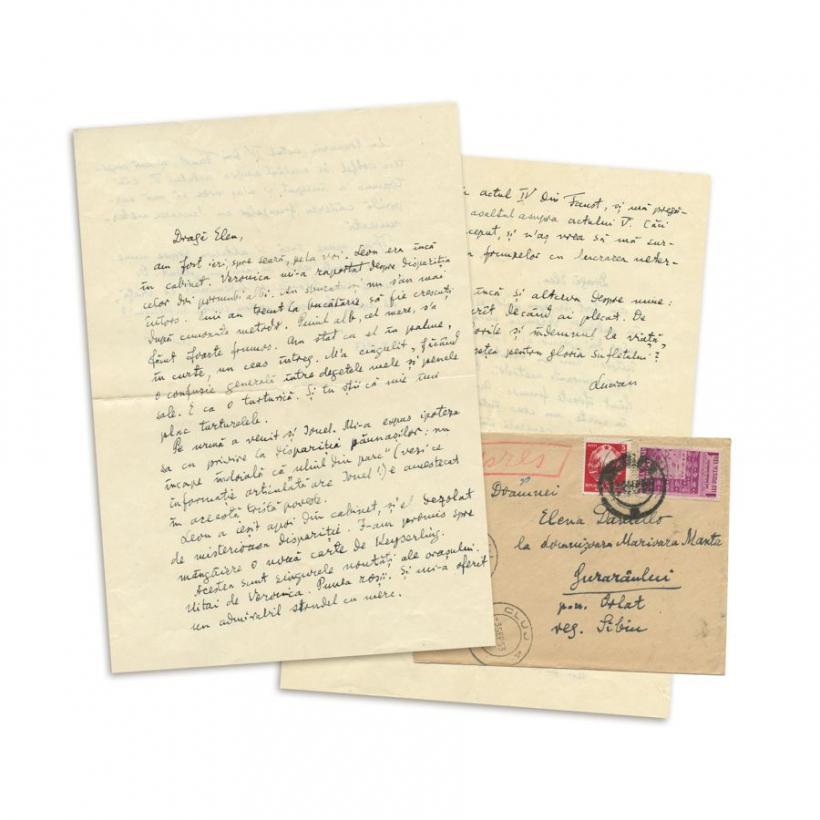 Dragă Elen,
am fost ieri, spre seară, pela voi. Leon era încă
în cabinet. Veronica mi-a raportat despre dispariția
celor doi porumbi albi. Au spus că nu s'au mai
întors. Unii au trecut la bucătărie, să fie crescuți
după cunoscuta metodă. Puiul alb, cel mare, s'a
făcut foarte frumos. Am stat cu el în palme,
în curte, un ceas întreg. M'a ciugulit, făcând
o confuzie generală între degetele mele și penele
sale. E ca o turturică. Și tu știi că mie îmi
plac turturelele.
Pe urmă a venit și Ionel. Mi-a expus ipoteza
sa cu privire la dispariția păunașilor: nu
încape îndoială că uliul din parc" (vezi ce
informație articulată are Ionel!) e amestecat
în această tristă poveste.
Leon a ieșit apoi din cabinet, și el dezolat
de misterioasa dispariție. I-am promis spre
mângâiere o nouă carte de Keyserling.
Acestea sunt singurele noutăți ale orașului.
Uitai de Veronica. Purta roșii. Și mi-a oferit
un admirabil strudel cu mere.
actul IV din Faust, și mă pregă-
asaltul asupra actului V. Căci
ceput, și n'aș vrea să mă sur-
frunzelor cu lucrarea neter-
încă și altceva despre mine:
decând ai plecat. De
și îndemnul la viață,
setea pentru gloria sufletului?
Lucian
pres
Doamnei
Elena Daniello
la domnișoara Marioara Manta
Gurarâului
pos. Orlat
reg. Sibiu
CLUJ